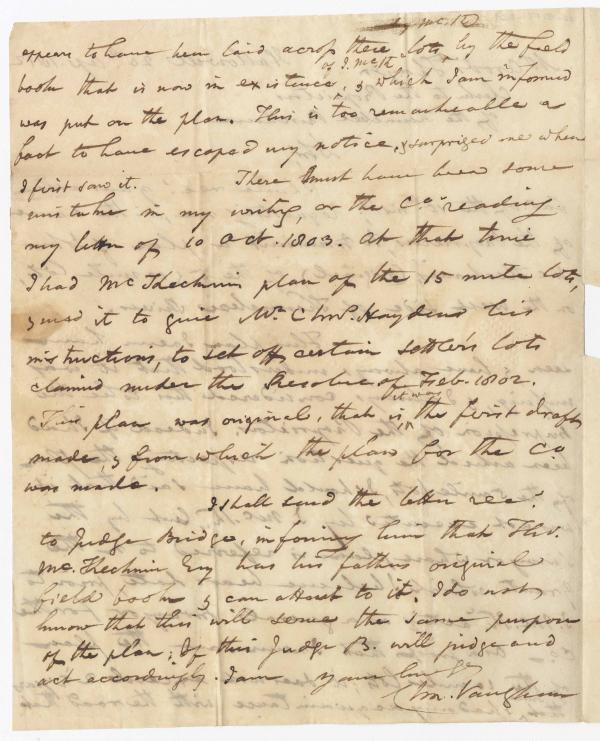 by McK
appears to have been laid across these lots, by the field
of J. McK
book that is now in existence, & which I am informed
was put on the plan. This is too remarkable a
fact to have escaped my notice, & surprized me when
I first saw it. There must have been some
mistake in my writing, or the Co. reading
my letter of 10 Oct. 1803. At that time
I had McKechnie's plan of the 15 mile lots,
& used it to give Mr. Chas. Hayden his
instructions, to set off certain settlers lots
claimed under the Resolve of Feb. 1802.
it was
This plan was original, that is, the first draft
made, & from which the plan for the Co
was made.
I shall send the letter recd.
to Judge Bridge, informing him that Thos.
McKechnie Esq has his fathers original
field book & can attest to it. I do not
know that this will serve the same purpose
of the plan; Of this Judge B. will judge and
act accordingly. I am your
Chs. Vaughan